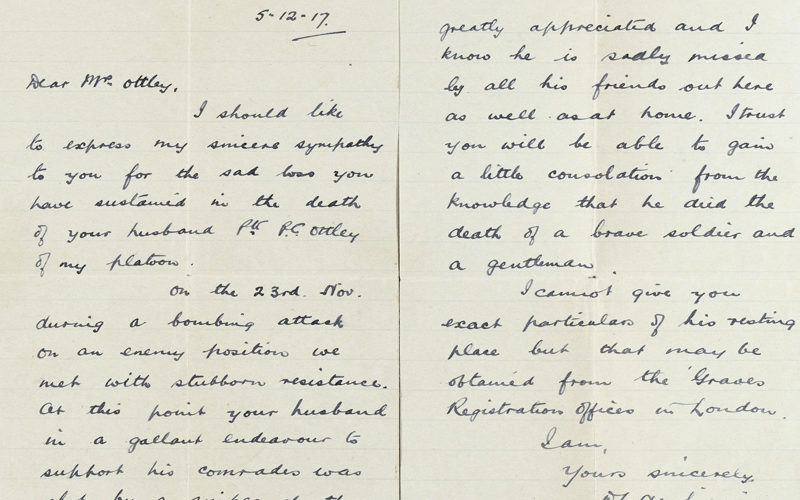 5-12-17.
Dear Mrs Ottley,
I should like
to express my sincere sympathy
to you for the sad loss you
have sustained in the death
of your husband Pte P.G. Ottley
of my platoon.
On the 23rd. Nov.
during a bombing attack
on an enemy position we
met with stubborn resistance.
At this point your husband
in a gallant endeavour to
support his comrades was
greatly appreciated and I
know he is sadly missed
by all his friends out here
as well as at home. I trust
you will be able to gain
a little consolation from the
knowledge that he died the
death of a brave soldier and
a gentleman.
I cannot give you
exact particulars of his resting
place but that may be
obtained from the Graves
Registration offices in London.
I am,
Yours sincerely.